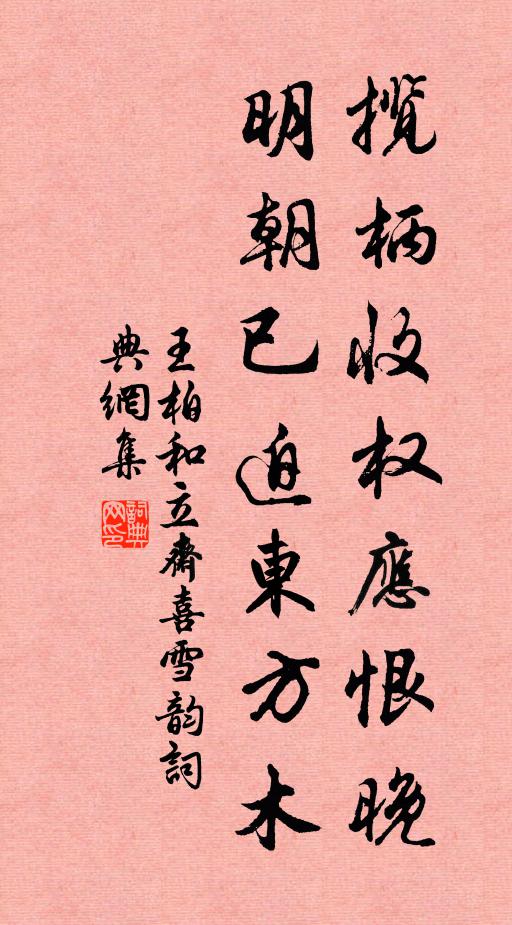 揽柄收权應恨晚
明朝已迫東方木
王柏和立齋喜雪韵詞
典網集
詞典网印